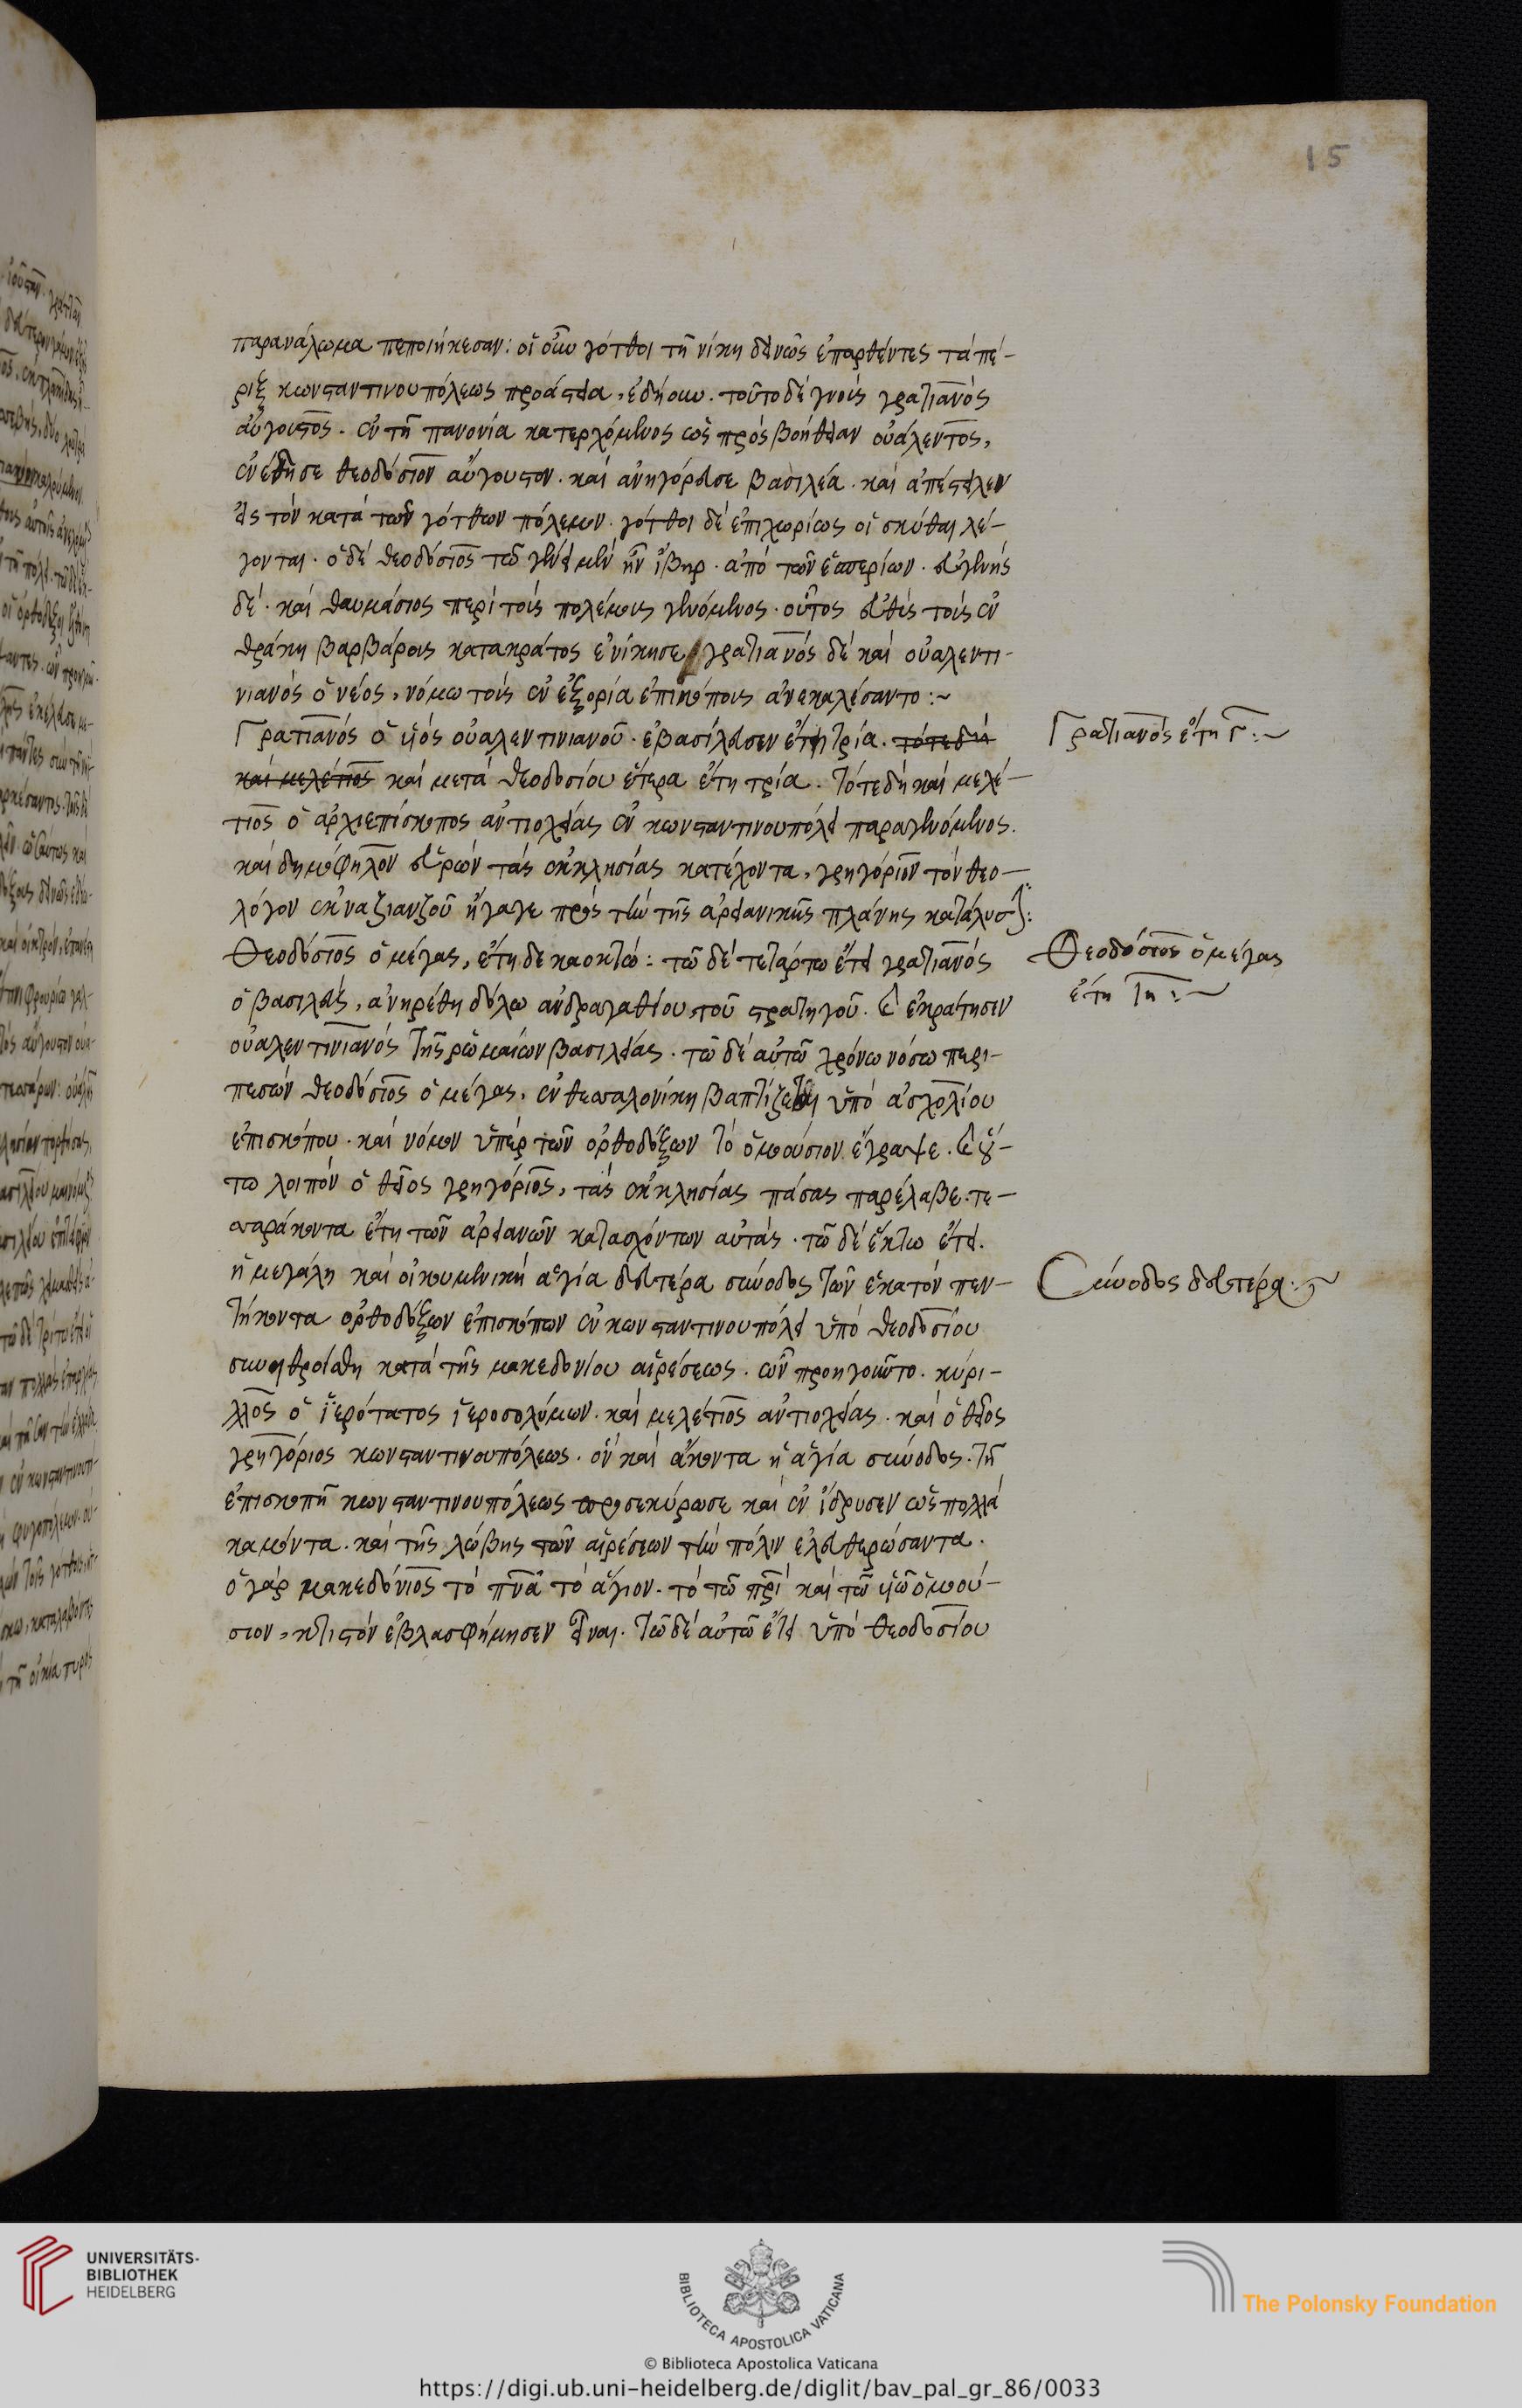 15
παρανάλωμα πεποιήκεσαν: οἱ οὖν γότθοι τῆ νίκη δεινῶς ἐπαρθέντες τὰ πέ-
ριξ κωνσταντινουπόλεως προάστεια, ἐδήουν. τοῦτο δὲ γνοὺς γρατιανὸς
αὔγουστος. ἐν τῆ πανονία κατερχόμενος ὡς πρὸς βοήθειαν οὐάλεντος,
θεοδόσιον αὔγουστον. καὶ ἀνηγόρευσε βασιλέα. καὶ ἀπέστειλεν
εἰς τὸν κατὰ τῶν γότθων πόλεμον. γότθοι δὲ ἐπιχωρίως οἱ σκύθαι λέ-
γονται. ὁ δὲ θεοδόσιος τῶ γένει μὲν ἦν ἴβηρ. ἀπὸ τῶν ἑσπερίων. εὐγενής
δὲ. καὶ θαυμάσιος περὶ τοὺς πολέμους γενόμενος. οὗτος εὐθὺς τοὺς ἐν
θράκη βαρβάρους κατακράτος ἐνίκησε γρατιανὸς δὲ καὶ οὐαλεντι-
νιανὸς ὁ νέος, νόμω τοὺς ἐν ἐξορία ἐπισκόπους ἀνεκαλέσαντο:~
Γρατιανὸς ὁ υἱὸς οὐαλεντινιανοῦ. ἐβασίλευσεν ἔτη τρία. τότε δὴ
καὶ μελέτιος καὶ μετὰ θεοδοσίου ἕτερα ἔτη τρία. τότε δὴ καὶ μελέ-
τιος ὁ ἀρχιεπίσκοπος ἀντιοχείας ἐν κωνσταντινουπόλει παραγενόμενος.
καὶ δημόφηλον εὑρὼν τὰς ἐκκλησίας κατέχοντα, γρηγόριον τὸν θεο-
λόγον ἐκ ναζιανζοῦ ἤγαγε πρὸς τὴν τῆς ἀρειανικῆς πλάνης κατάλυσιν:
Θεοδόσιος ὁ μέγας, ἔτη δεκαοκτώ: τῶ δὲ τετάρτω ἔτει γρατιανὸς
ὁ βασιλεὺς, ἀνηρέθη δόλω ἀνδραγαθίου τοῦ στρατηγοῦ. καὶ ἐκράτησεν
οὐαλεντινιανὸς τῆς ῥωμαίων βασιλείας. τῶ δὲ αὐτῶ χρόνω νόσω περι-
πεσὼν θεοδόσιος ὁ μέγας, ἐν θεσσαλονίκη βαπτίζεται ὑπὸ ἀσχολίου
ἐπισκόπου. καὶ νόμον ὑπὲρ τῶν ὀρθοδόξων τὸ ὁμοούσιον ἔγραψε. καὶ οὕ-
τω λοιπὸν ὁ θεῖος γρηγόριος, τὰς ἐκκλησίας πάσας παρέλαβε. τε-
σσαράκοντα ἔτη τῶν ἀρειανῶν κατασχόντων αὐτάς. τῶ δὲ ἕκτω ἔτει.
ἡ μεγάλη καὶ οἰκουμενικὴ ἁγία δευτέρα σύνοδος τῶν ἑκατὸν πεν-
τήκοντα ὀρθοδόξων ἐπισκόπων ἐν κωνσταντινουπόλει ὑπὸ θεοδοσίου
συνηθροίσθη κατὰ τῆς μακεδονίου αἱρέσεως. ὧν προηγοῦντο. κύρι-
λλος ὁ ἱερότατος ἱεροσολύμων. καὶ μελέτιος ἀντιοχείας. καὶ ὁ θεῖος
γρηγόριος κωνσταντινουπόλεως. ὃν καὶ ἄκοντα ἡ ἁγία σύνοδος. τῆ
ἐπισκοπῆ κωνσταντινουπόλεως προσεκύρωσε καὶ ἐνίδρυσεν ὡς πολλὰ
καμόντα. καὶ τῆς λώβης τῶν αἱρέσεων τὴν πόλιν ἐλευθερώσαντα.
ὁ γὰρ μακεδόνιος τὸ πνᾶ τὸ ἅγιον. τὸ τῶ πρὶ καὶ τῶ υἱῶ ὁμοού-
σιον, κτιστὸν ἐβλασφήμησεν εἶναι. τῶ δὲ αὐτῶ ἔτει ὑπὸ θεοδοσίου
Γρατιανὸς ἔτη Γ:~
Θεοδόσιος ὁ μέγας
ἔτη ιη:~
Σύνοδος δευτέρα:~
UNIVERSITÄTS-
BIBLIOTHEK
HEIDELBERG
BIBLIOTECA APOSTOLICA VATICANA
The Polonsky Foundation
© Biblioteca Apostolica Vaticana
https://digi.ub.uni-heidelberg.de/diglit/bav_pal_gr_86/0033